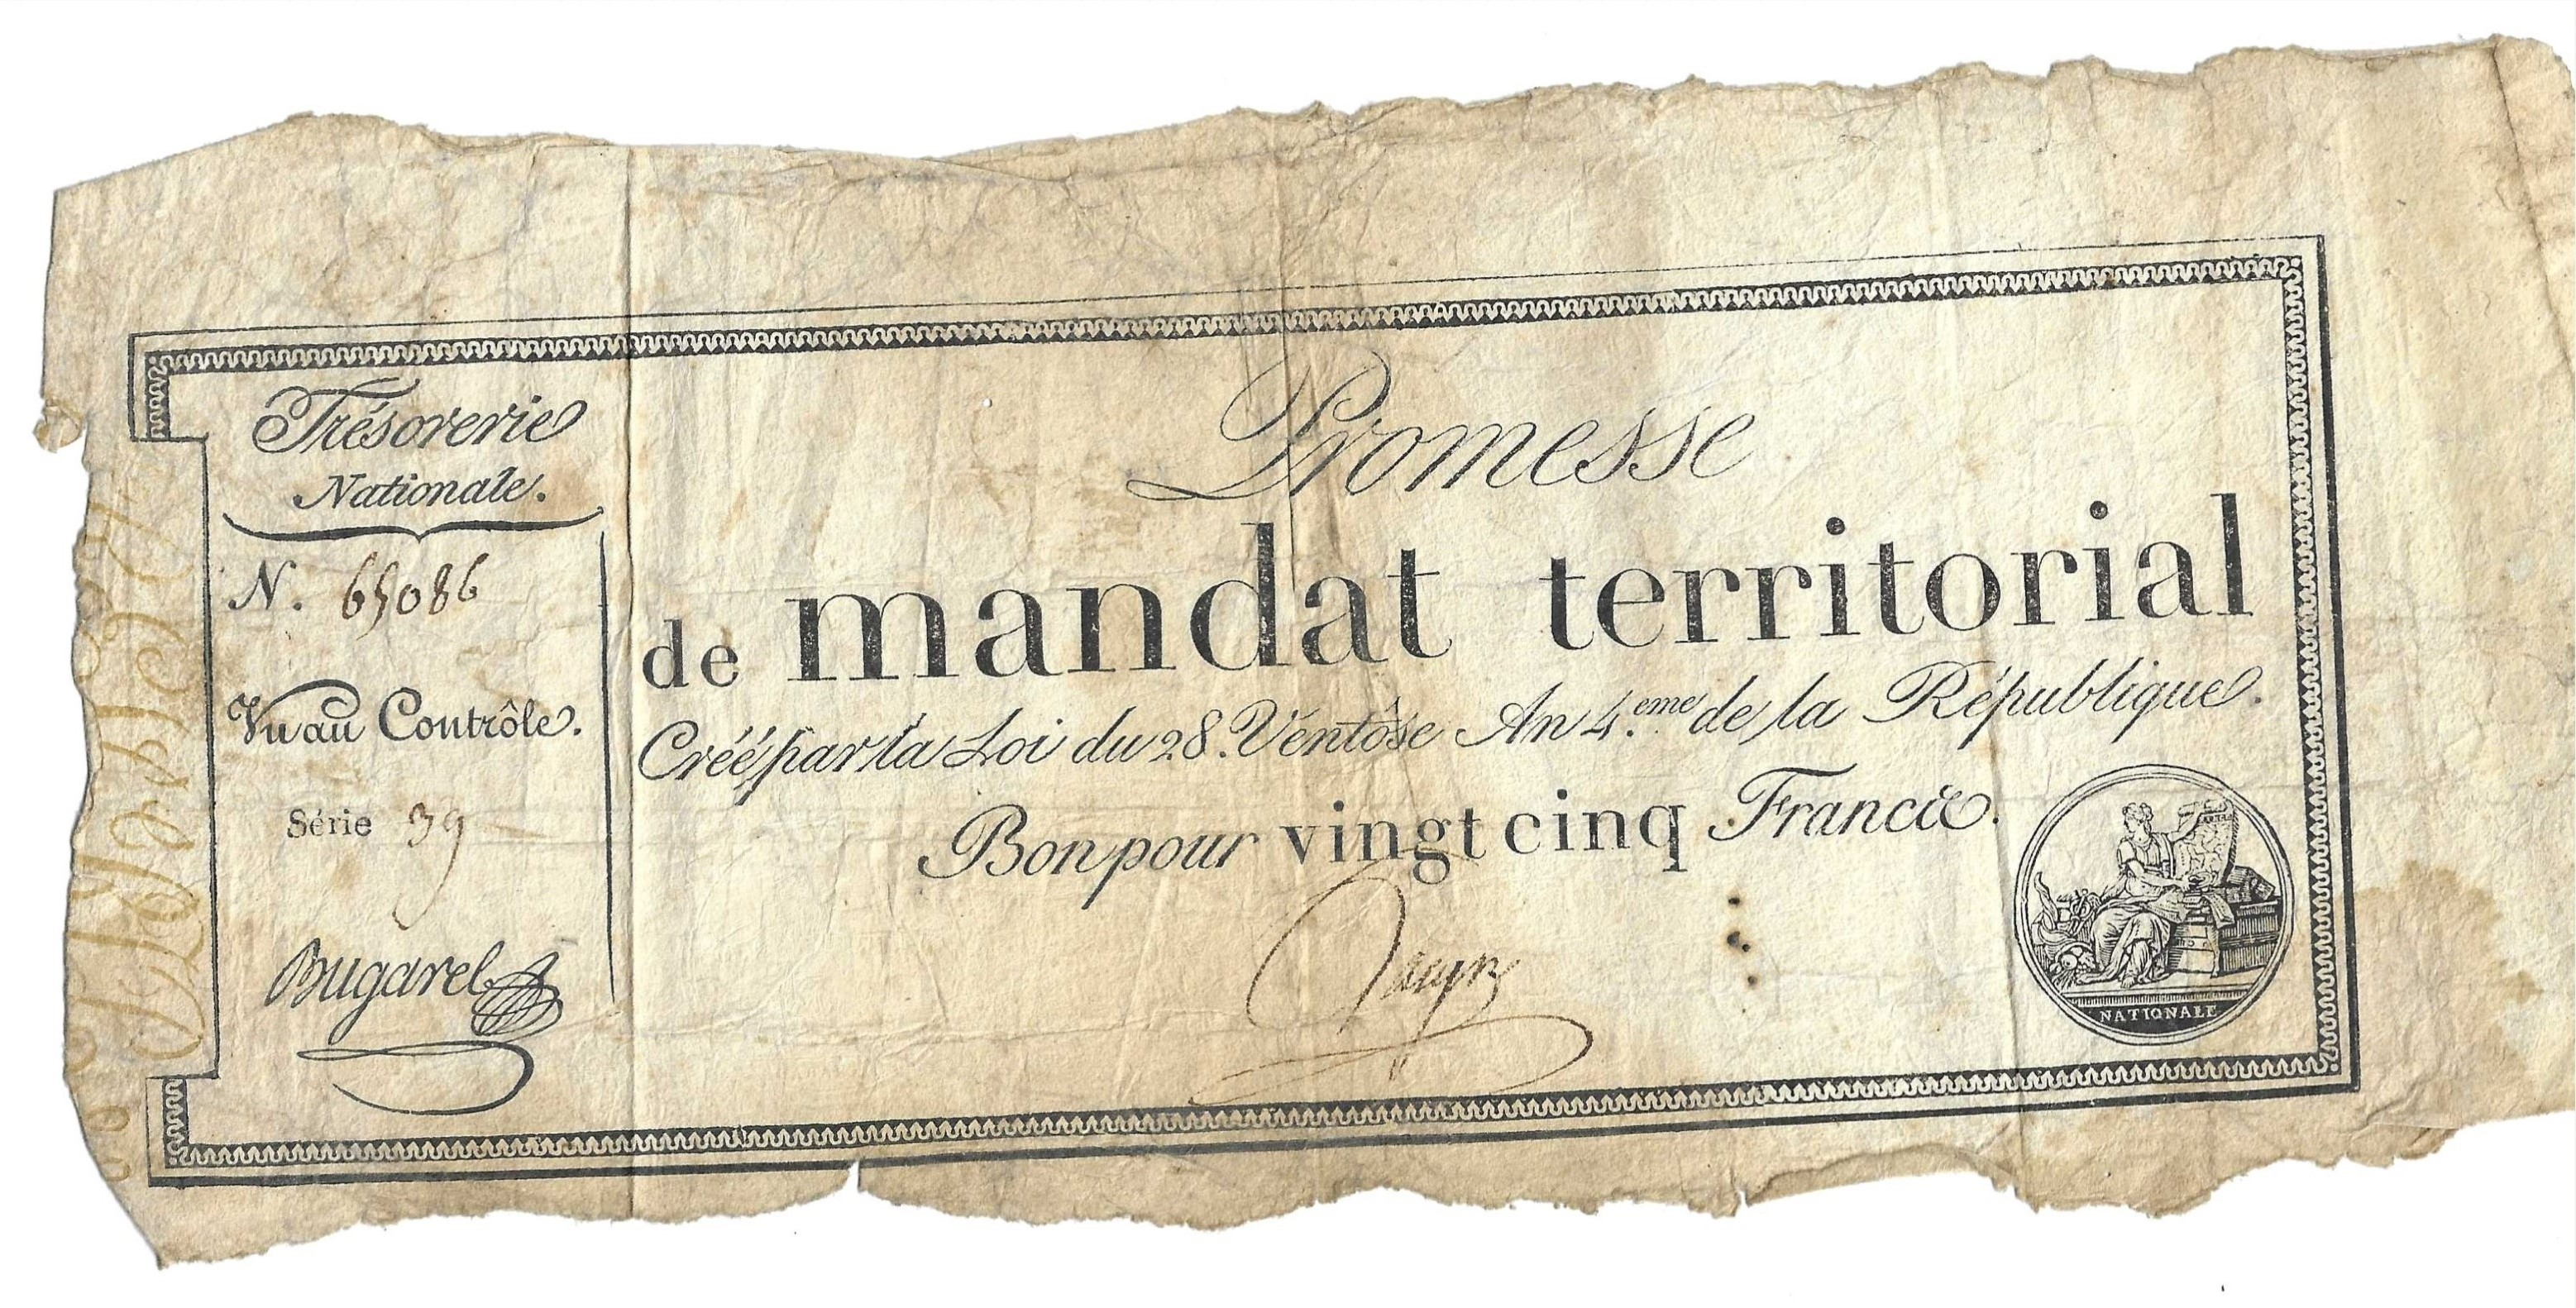 Trésorerie
Nationale.
N. 65086
Vu au Contrôle.
Série 39
Bugarel
Promesse
de mandat territorial
Créé par la Loi du 28. Ventôse An 4.eme de la République.
Bon pour vingt cinq Francs.
NATIONALE